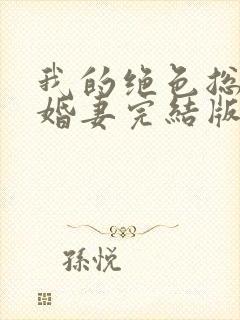 我的绝色总
婚妻完结版
孫悦